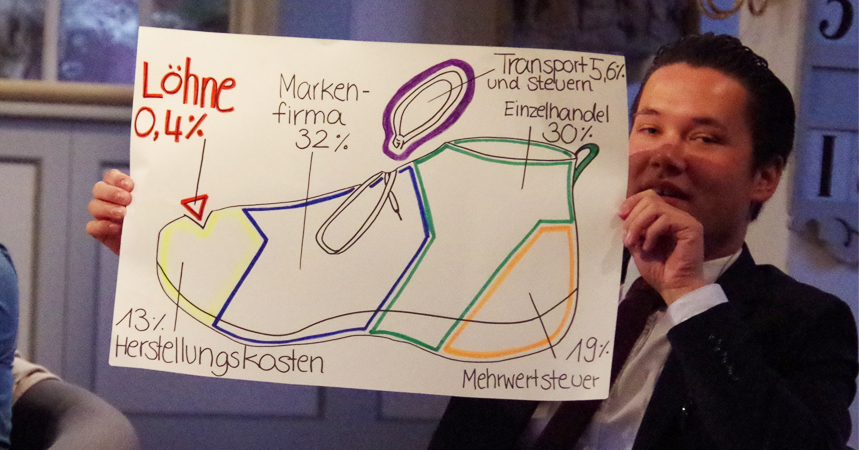 Löhne
0,4%
Marken-
firma
32%
Transport 5,6%
und Steuern
Einzelhandel
30%
13%
Herstellungskosten
19%
Mehrwertsteuer
5
1